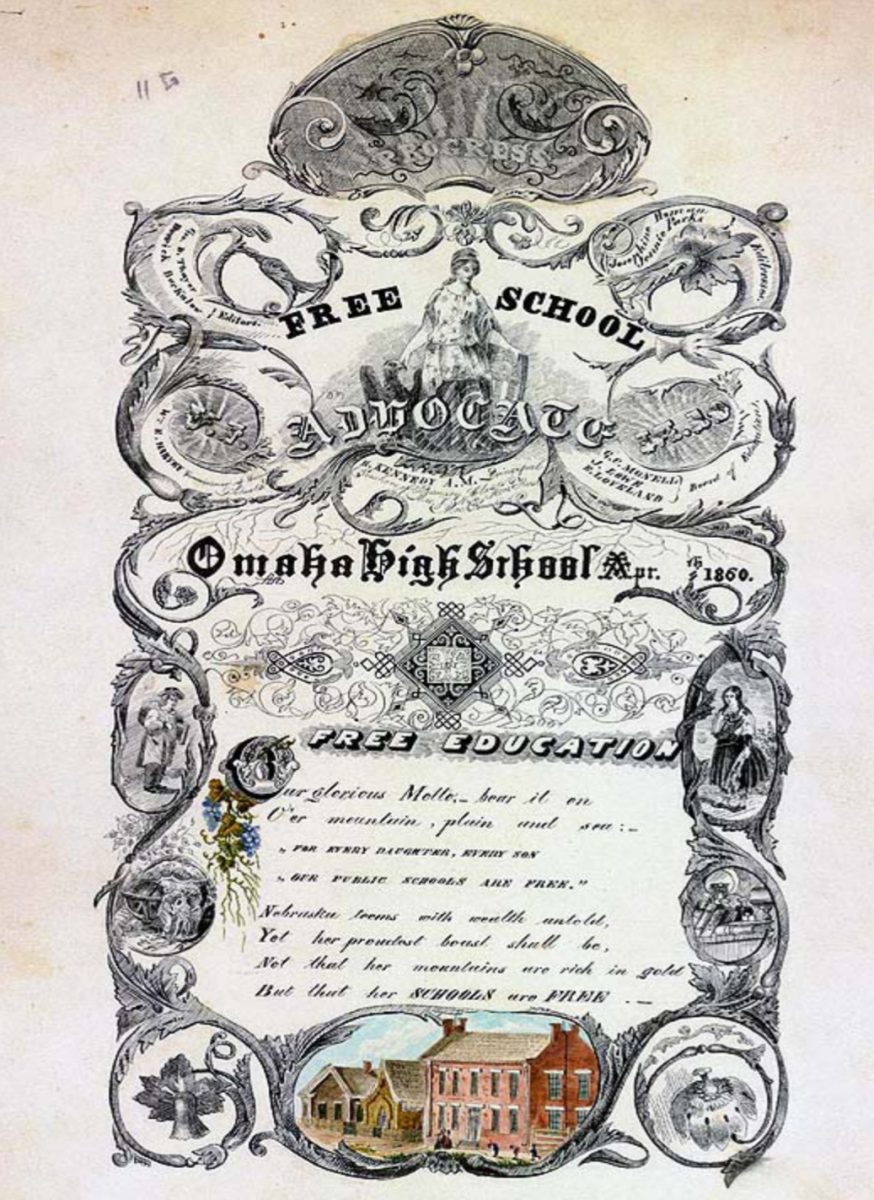 11 G
PROGRESS
Editors.
Josephine
Jennie Parks
Editresses.
FREE SCHOOL
ADVOCATE
H. KENNEDY A.M. Principal
G. P. MONELL
J. E. LOWE
R. LOVELAND
Board of Education
Omaha High School Apr. th 1860.
FREE EDUCATION
Our glorious Motto,– bear it on
O'er mountain, plain and sea:–
„ FOR EVERY DAUGHTER, EVERY SON
„ OUR PUBLIC SCHOOLS ARE FREE."
Nebraska teems with wealth untold,
Yet her proudest boast shall be,
Not that her mountains are rich in gold
But that her SCHOOLS are FREE .–